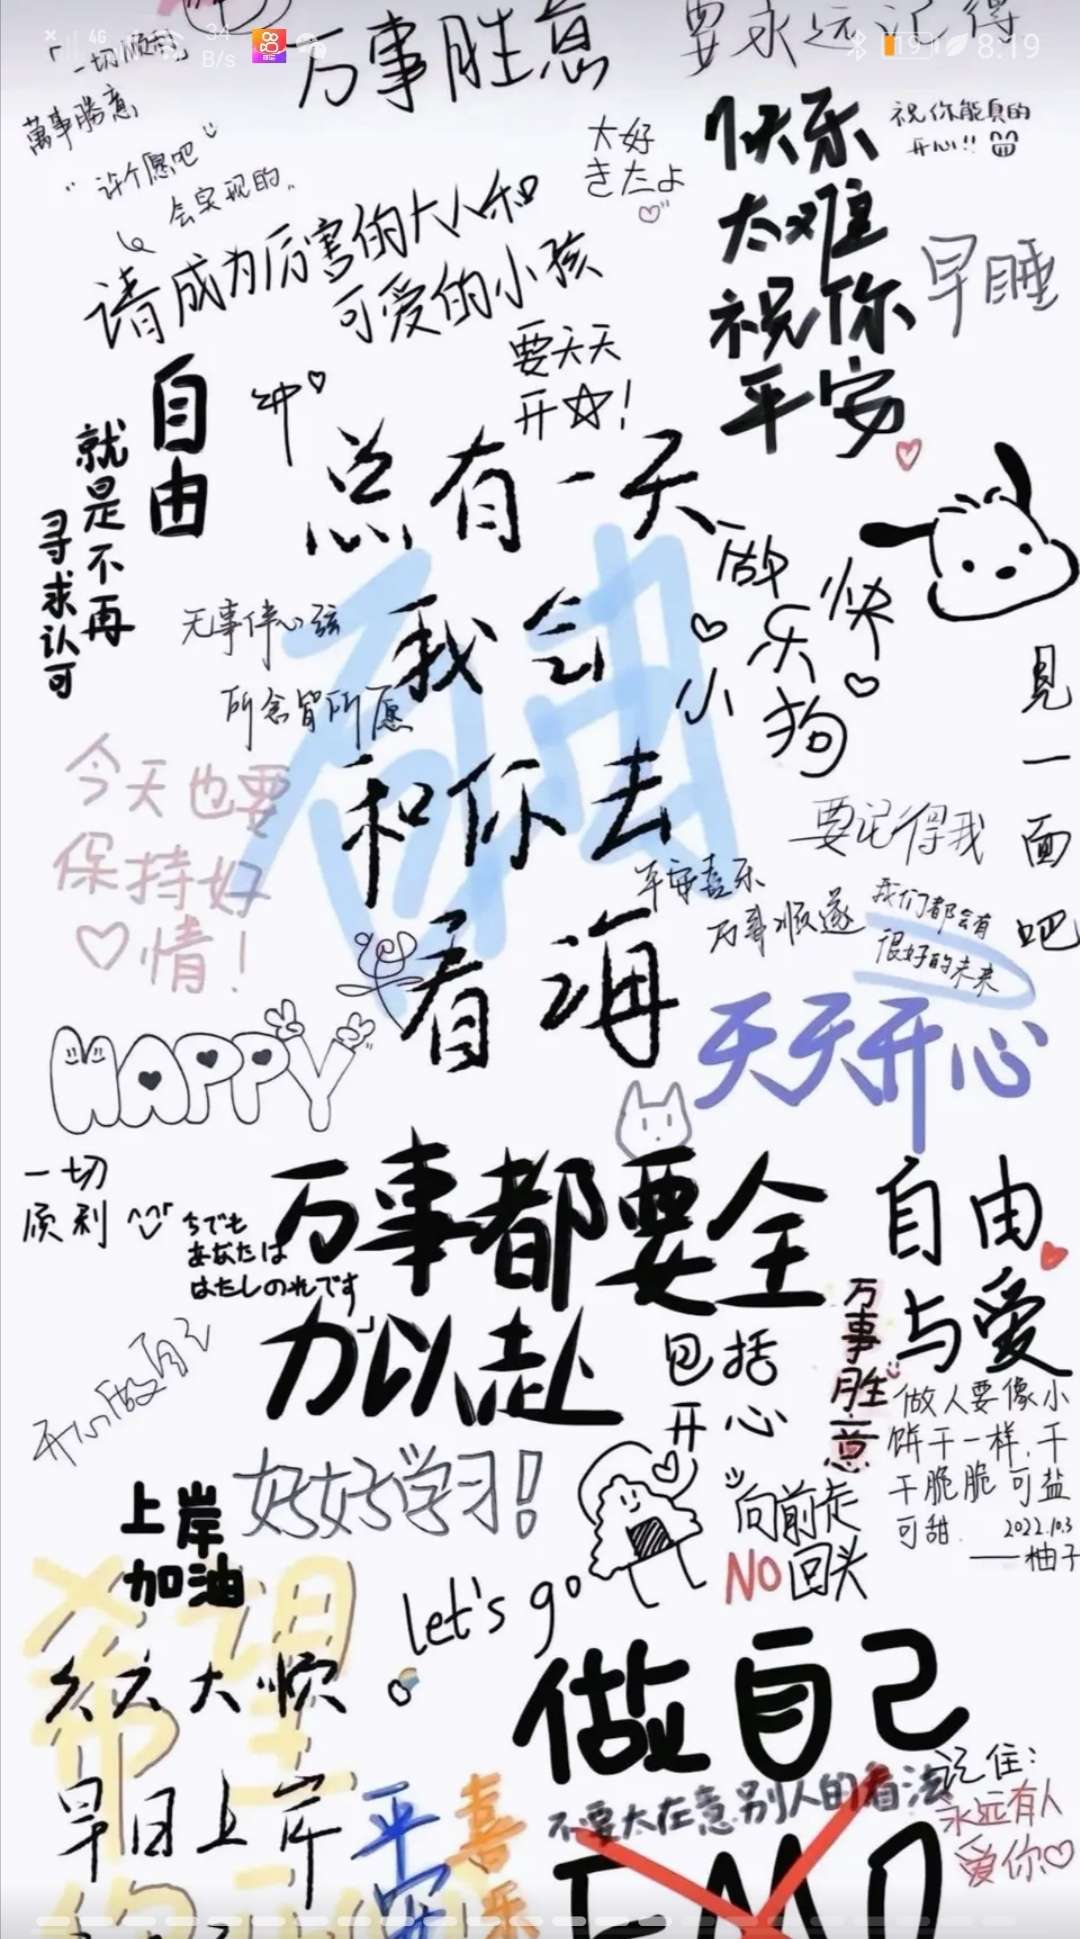 4G
34
B/s
19
8:19
一切顺利
万事胜意
要永远记得
萬事勝意
许个愿吧
会实现的。
大好
きたよ
快乐
太难
祝你
平安
祝你能真的
开心!!
早睡
请成为厉害的大人和
可爱的小孩
要天天
开☆!
自由
就是不再
寻求认可
总有一天
我会
和你去
看海
自由
做
快
乐
小
狗
无事伴心弦
所念皆所愿
今天也要
保持好
♡情!
见一面吧
要记得我
平安喜乐
万事顺遂
我们都会有
很好的未来
天天开心
HAPPY
一切
顺利
万事都要全
力以赴
包括
开心
自由
与爱
万事胜意
ちでも
あなたは
はたしの光です
开心做自己
好好学习!
上岸
加油
做人要像小
饼干一样,干
干脆脆可盐
可甜.
2022.10.3
——柚子
向前走
NO回头
let's go
希望
大大大顺
做自己
不要太在意别人的看法
EMO
记住:
永远有人
爱你♡
早日上岸
平安
喜乐